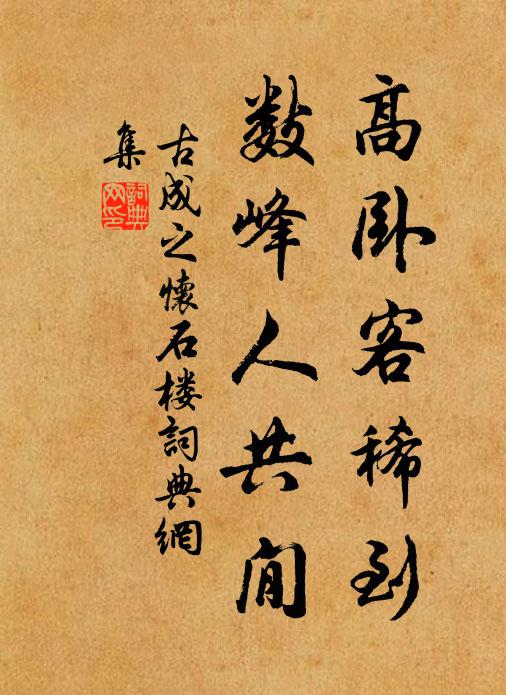 高卧客稀到
数峰人共闲
古成之懷石楼詞典網
集
詞典网印